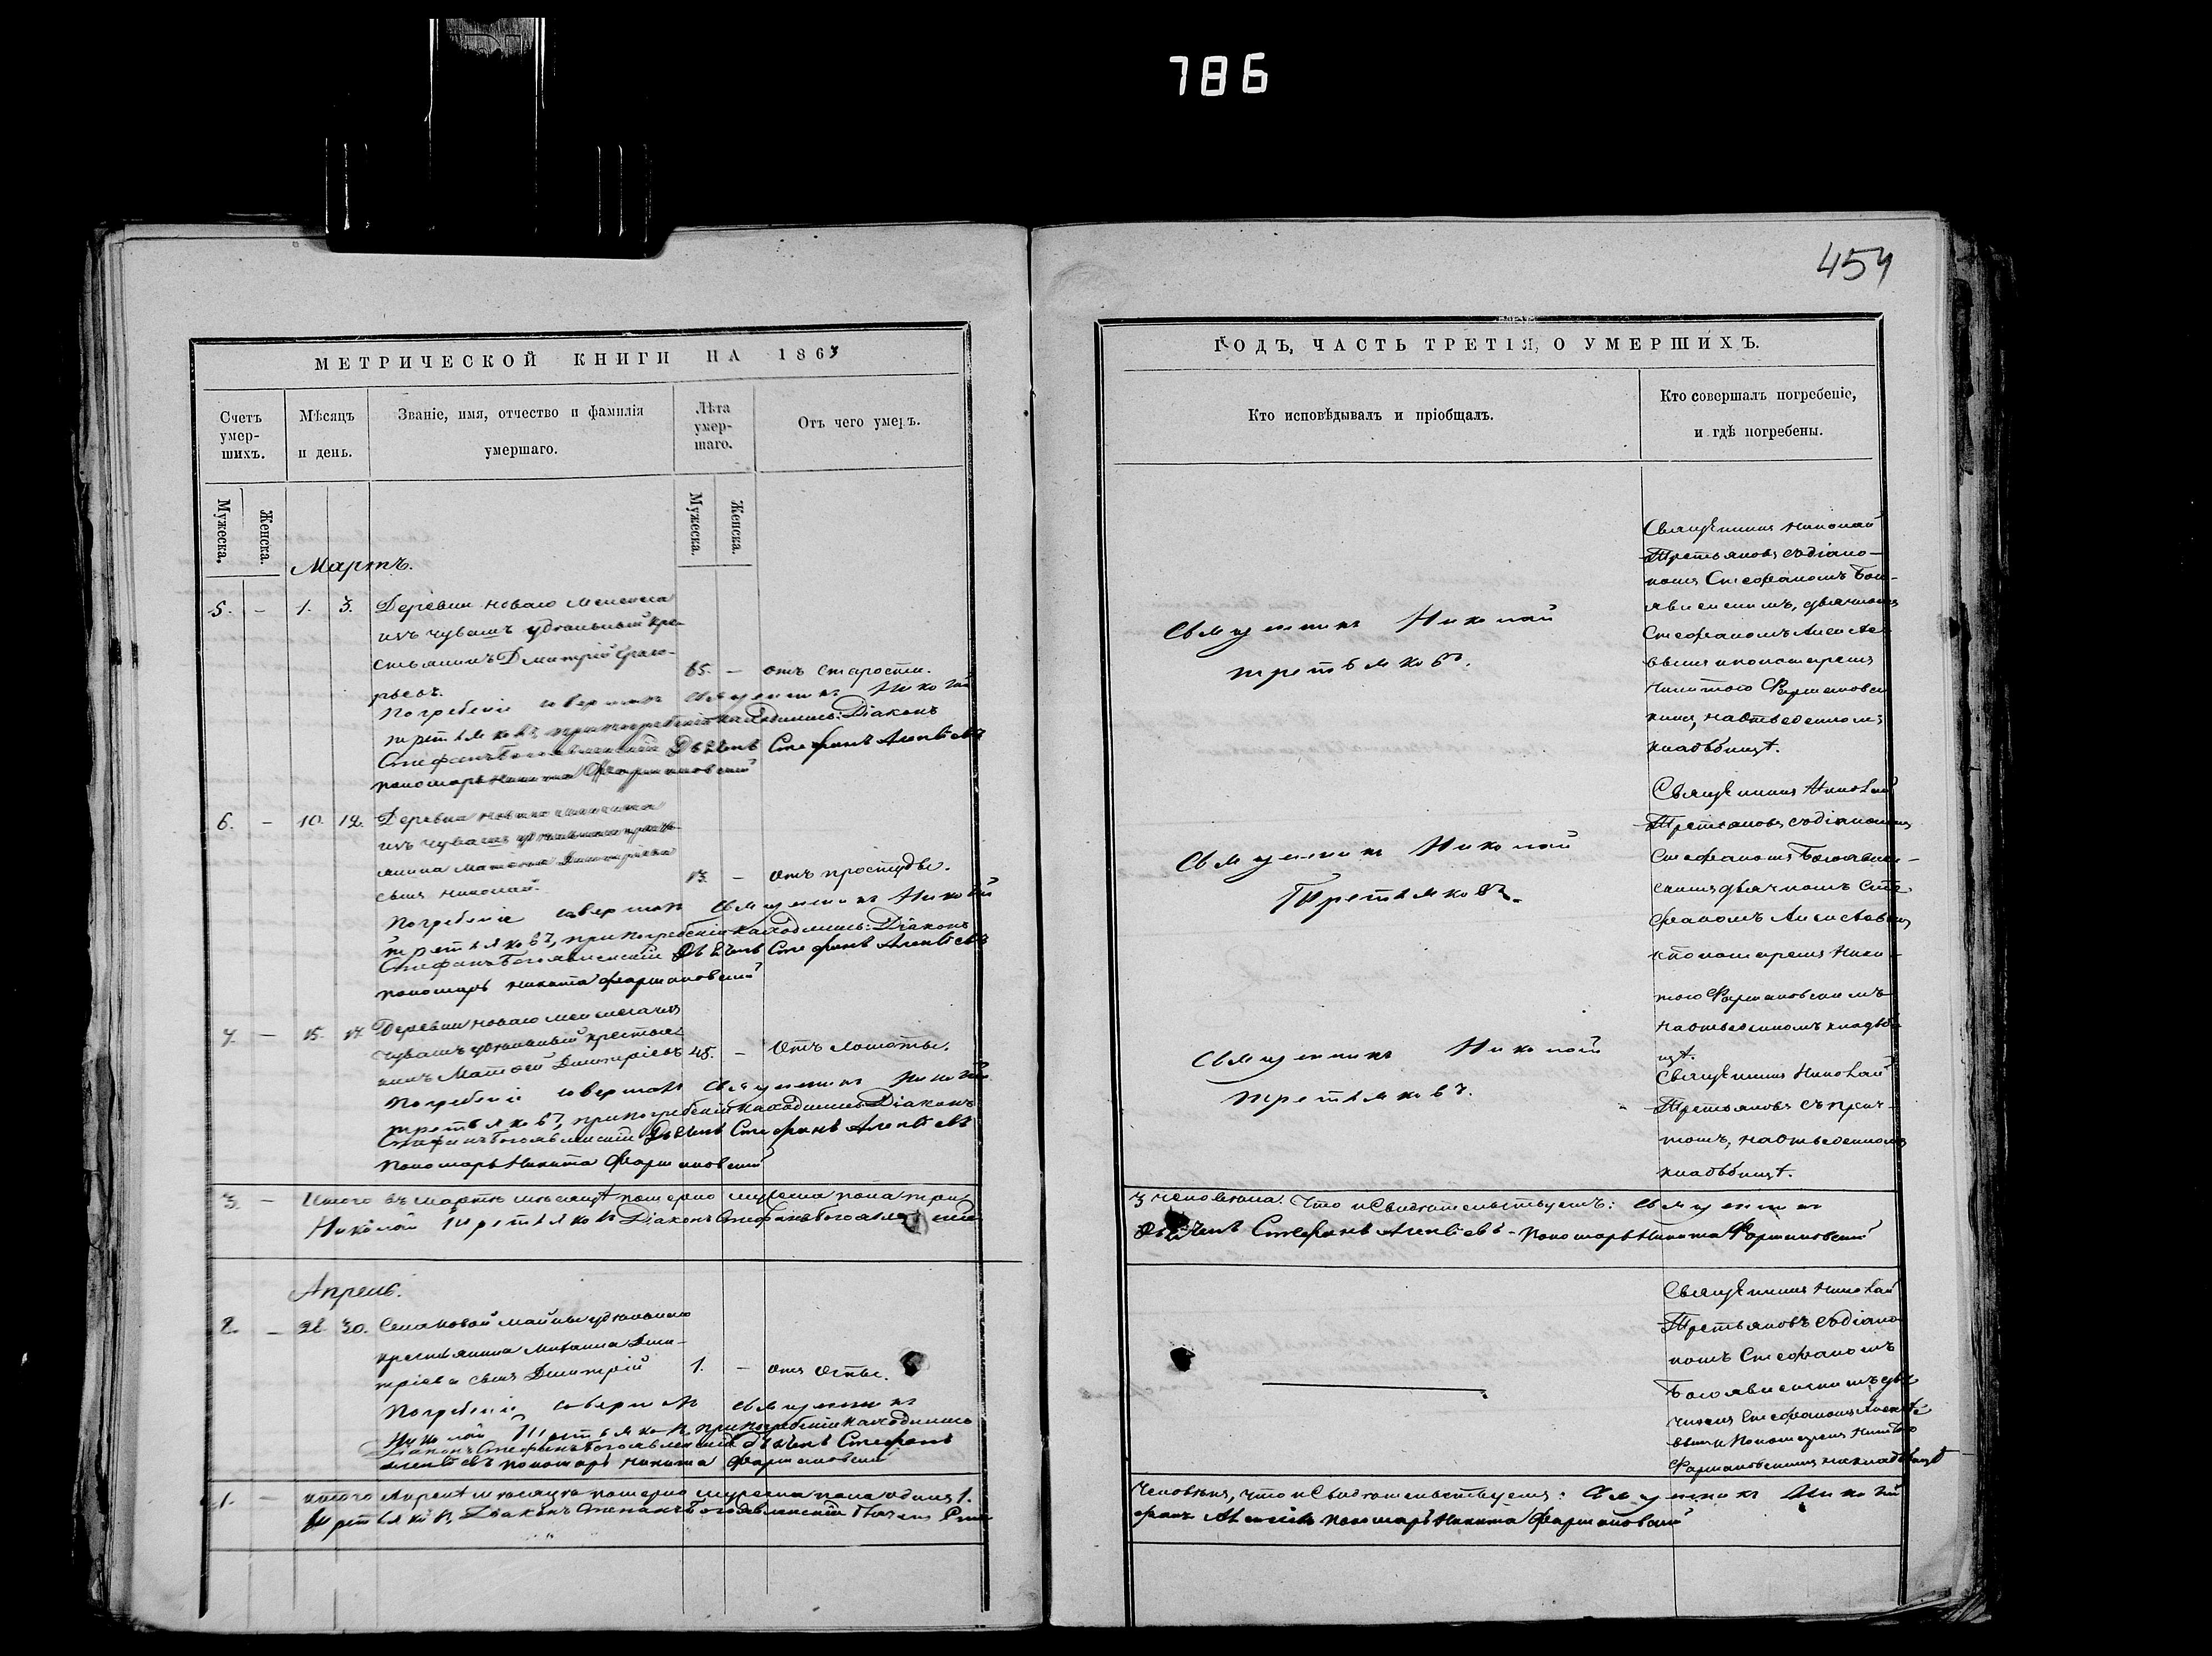 786
454
МЕТРИЧЕСКОЙ КНИГИ НА 1863
Счетъ умер-шихъ.
Мѣсяцъ и день.
Званіе, имя, отчество и фамилія умершаго.
Лѣта умер-шаго.
Отъ чего умеръ.
Мужеска.
Женска.
Мужеска.
Женска.
Мартъ.
5. - 1. 3. Деревни Новаго
изъ чувашъ удѣльный кре-
стьянинъ Дмитрій Григо-
рьевъ. 65. - отъ старости.
Погребеніе совершалъ священникъ Николай
Третьяковъ, при погребеніи находились: Діаконъ
Стефанъ Богоявленскій Дьячекъ Стефанъ Алексѣевъ
пономарь Никита
6. - 10. 12. Деревни Новаго
изъ чувашъ удѣльнаго кресть-
янина Матвея Димитріева
сынъ Николай. 13. - отъ простуды.
Погребеніе совершалъ священникъ Николай
Третьяковъ, при погребеніи находились: Діаконъ
Стефанъ Богоявленскій Дьячекъ Стефанъ Алексѣевъ
пономарь Никита
7. - 15. 17. Деревни Новаго
чувашъ удѣльный крестья-
нинъ Матвей Димитріевъ 45. - Отъ ломоты.
Погребеніе совершалъ священникъ Николай
Третьяковъ, при погребеніи находились Діаконъ
Стефанъ Богоявленскій Дьячекъ Стефанъ Алексѣевъ
пономарь Никита
3. - Итого въ Мартѣ мѣсяцѣ померло мужеска пола три
Николай Третьяковъ Діаконъ Стефанъ Богоявленскій
Апрель.
8. - 28 30. Села Новой Майны удѣльнаго
крестьянина Михаила Дми-
тріева сынъ Димитрій 1. - отъ Оспы.
Погребеніе совершалъ священникъ
Николай Третьяковъ при погребеніи находились
Діаконъ Стефанъ Богоявленскій дьячекъ Стефанъ
Алексѣевъ пономарь Никита
1. - Итого Апрелѣ мѣсяцѣ померло мужеска пола одинъ 1.
Третьяковъ, Діаконъ Стефанъ Богоявленскій
ГОДЪ, ЧАСТЬ ТРЕТІЯ, О УМЕРШИХЪ.
Кто исповѣдывалъ и пріобщалъ.
Кто совершалъ погребеніе, и гдѣ погребены.
Священникъ Николай
Третьяковъ.
Священникъ Николай
Третьяковъ съ діако-
номъ Стефаномъ Бого-
явленскимъ, дьячкомъ
Стефаномъ Алексѣе-
вымъ и пономаремъ
Никитою
на отведенномъ
кладбищѣ.
Священникъ Николай
Третьяковъ.
Священникъ Николай
Третьяковъ съ діакономъ
Стефаномъ Богоявлен-
скимъ дьячкомъ Сте-
фаномъ Алексѣевымъ
и пономаремъ Ники-
тою
на отведенномъ кладби-
щѣ.
Священникъ Николай
Третьяковъ.
Священникъ Николай
Третьяковъ съ прич-
томъ, на отведенномъ
кладбищѣ.
3 человѣка. Что и Свидѣтельствуемъ: Священникъ
Дьячекъ Стефанъ Алексѣевъ - пономарь Никита
Священникъ Николай
Третьяковъ съ діако-
номъ Стефаномъ
Богоявленскимъ дья-
чкомъ Стефаномъ Алексѣе-
вымъ и Пономаремъ Никитою
на кладбищѣ
Человѣкъ, что и Свидѣтельствуемъ: Священникъ Николай
пономарь Никита